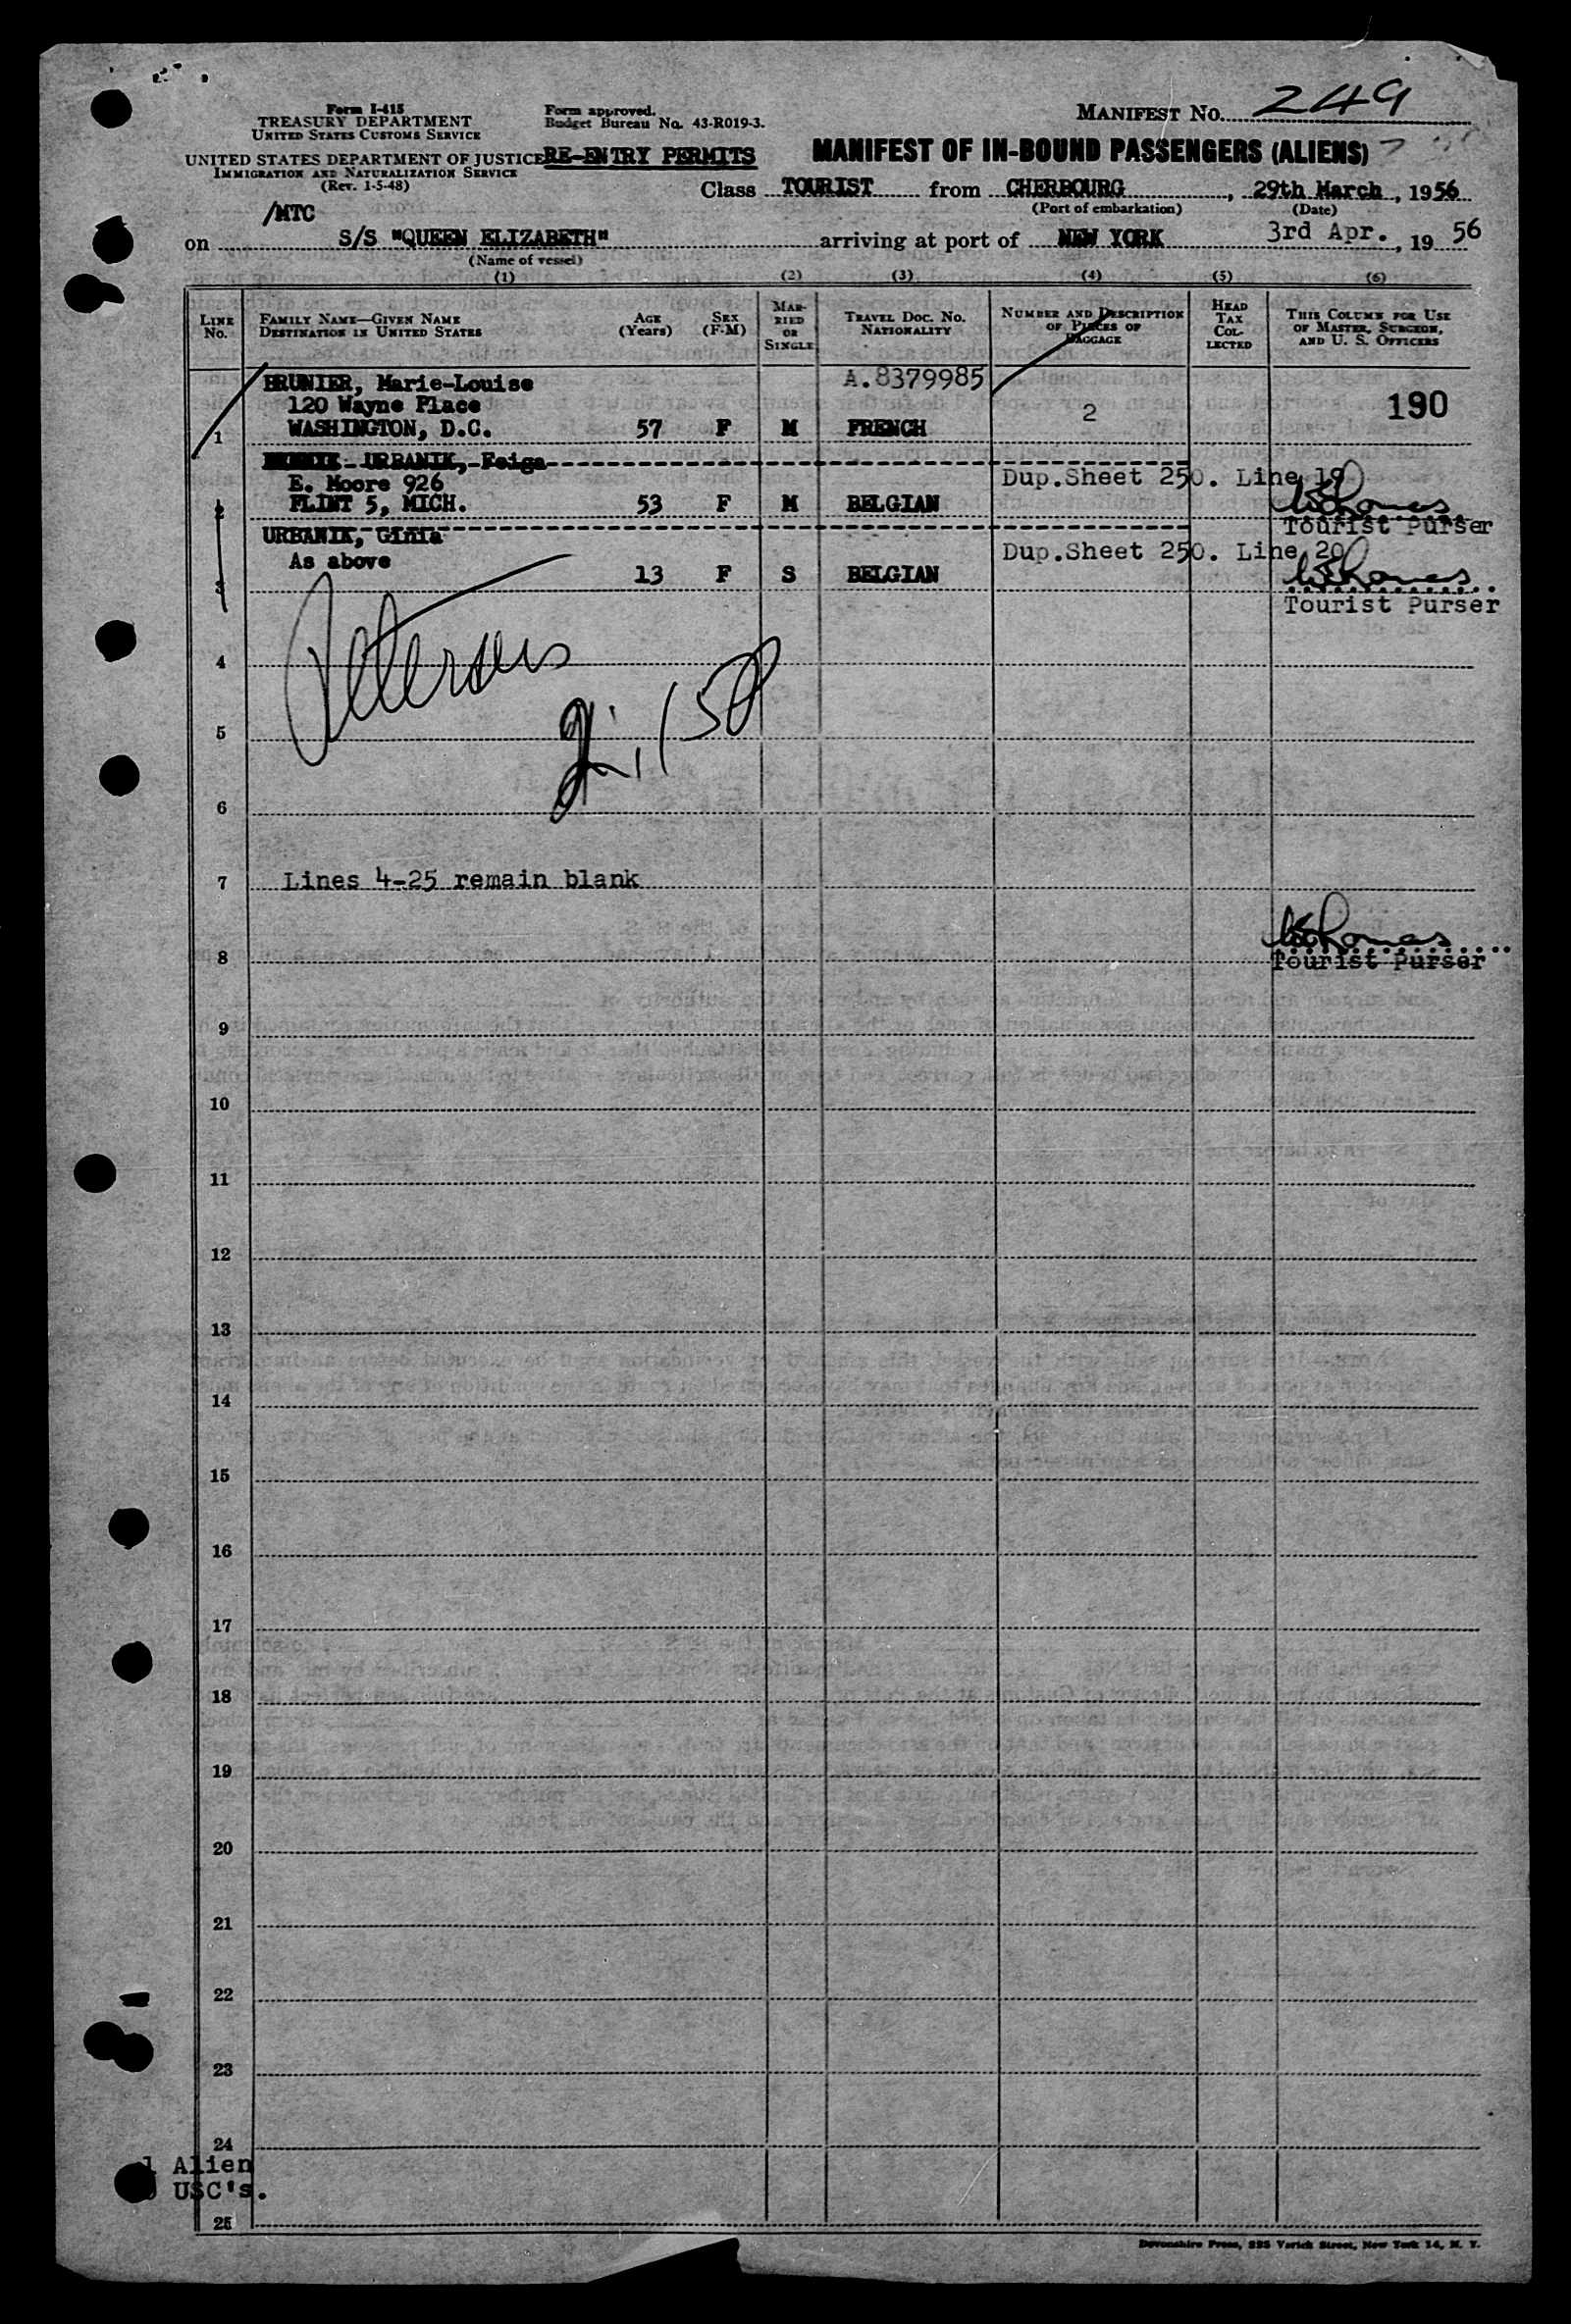 MANIFEST NO. 249
Form I-415
TREASURY DEPARTMENT
UNITED STATES CUSTOMS SERVICE
Form approved.
Budget Bureau No. 43-R019-3.
UNITED STATES DEPARTMENT OF JUSTICE
IMMIGRATION AND NATURALIZATION SERVICE
(Rev. 1-5-48)
RE-ENTRY PERMITS
MANIFEST OF IN-BOUND PASSENGERS (ALIENS)
Class TOURIST from CHERBOURG, 29th March, 1956
(Port of embarkation) (Date)
/MTC
on S/S "QUEEN ELIZABETH" arriving at port of NEW YORK 3rd Apr., 19 56
(Name of vessel)
(1) (2) (3) (4) (5) (6)
LINE NO.
FAMILY NAME—GIVEN NAME
DESTINATION IN UNITED STATES
AGE (Years)
SEX (F-M)
MARRIED OR SINGLE
TRAVEL DOC. NO. NATIONALITY
NUMBER AND DESCRIPTION OF PIECES OF BAGGAGE
HEAD TAX COLLECTED
THIS COLUMN FOR USE OF MASTER, SURGEON, AND U. S. OFFICERS
BRUNIER, Marie-Louise A.8379985
120 Wayne Place 2 190
1 WASHINGTON, D.C. 57 F M FRENCH
URBANIK, Feiga
E. Moore 926 Dup.Sheet 250. Line 19
2 FLINT 5, MICH. 53 F M BELGIAN
Tourist Purser
URBANIK, Ginia
As above Dup.Sheet 250. Line 20
3 13 F S BELGIAN
Tourist Purser
4
5
6
7 Lines 4-25 remain blank
8 Tourist Purser
9
10
11
12
13
14
15
16
17
18
19
20
21
22
23
24
1 Alien
USC's.
25
Devonshire Press, 225 Varick Street, New York 14, N. Y.